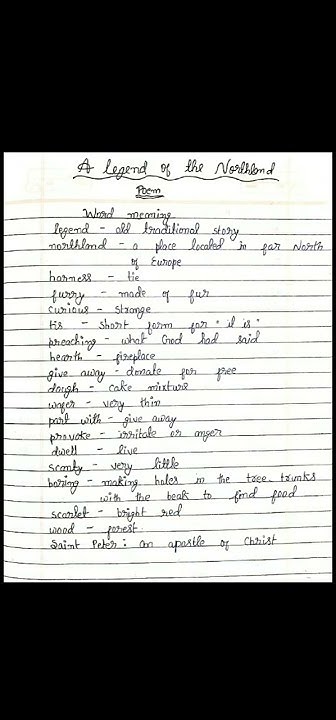 A legend of the Northland
Poem
Word meaning
legend - old traditional story
northland - a place located in far North
of Europe
harness - tie
furry - made of fur
curious - strange
tis - short form for "it is"
preaching - what God had said
hearth - fireplace
give away - donate for free
dough - cake mixture
wafer - very thin
part with - give away
provoke - irritate or anger
dwell - live
scanty - very little
boring - making holes in the tree trunks
with the beak to find food
scarlet - bright red
wood - forest
Saint Peter : an apostle of Christ